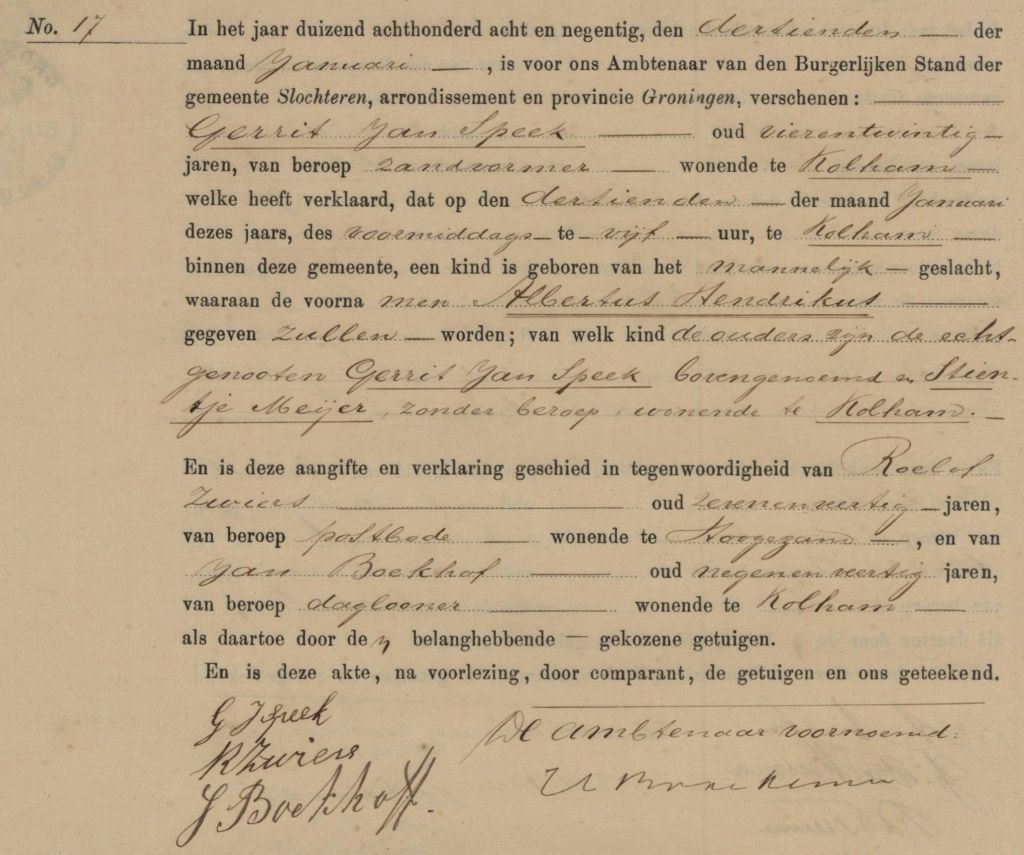 No. 17 In het jaar duizend achthonderd acht en negentig, den dertienden der
maand Januari, is voor ons Ambtenaar van den Burgerlijken Stand der
gemeente Slochteren, arrondissement en provincie Groningen, verschenen:
Gerrit Jan Speek oud vierentwintig
jaren, van beroep zandvormer wonende te Kolham
welke heeft verklaard, dat op den dertienden der maand Januari
dezes jaars, des voormiddags te vijf uur, te Kolham
binnen deze gemeente, een kind is geboren van het mannelijk geslacht,
waaraan de voorna men Albertus Hendrikus
gegeven zullen worden; van welk kind de ouders zijn de echt-
genooten Gerrit Jan Speek bovengenoemd en Stien-
tje Meijer, zonder beroep, wonende te Kolham.
En is deze aangifte en verklaring geschied in tegenwoordigheid van Roelof
Zwiers oud zevenenveertig jaren,
van beroep postbode wonende te Hoogezand, en van
Jan Boekhof oud negenenveertig jaren,
van beroep daglooner wonende te Kolham
als daartoe door den belanghebbende gekozene getuigen.
En is deze akte, na voorlezing, door comparant, de getuigen en ons geteekend.
G J Speek
R Zwiers
J Boekhoff.
De Ambtenaar voornoemd: